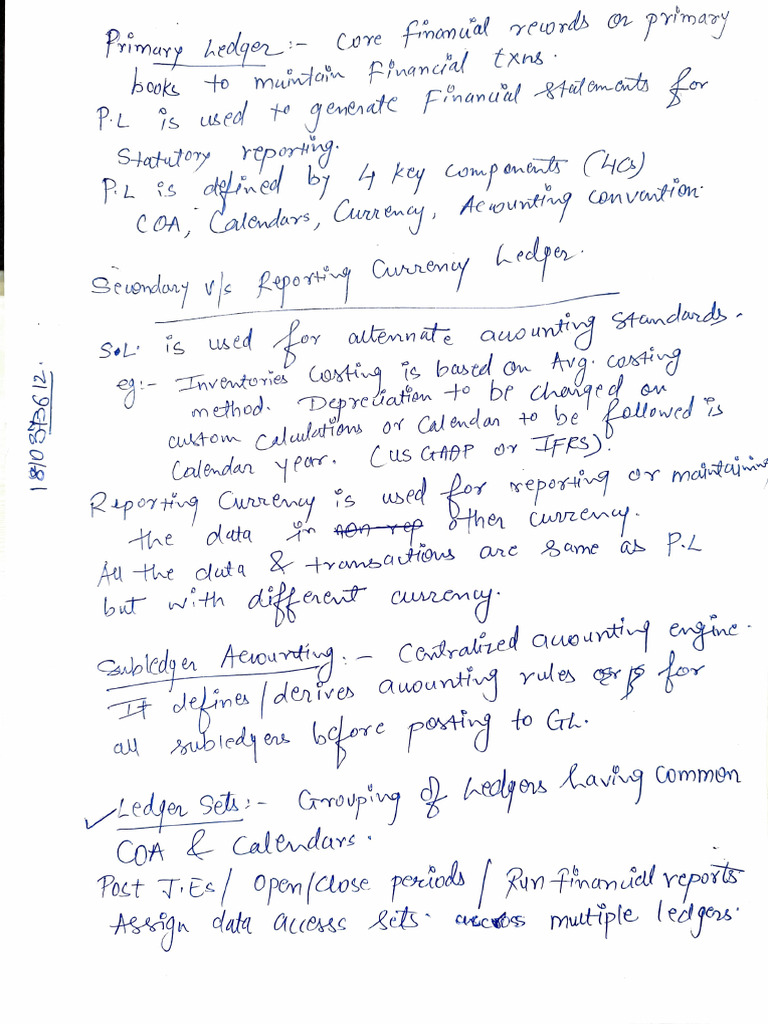 Primary Ledger :- Core financial records or primary
books to maintain Financial txns.
P.L is used to generate Financial Statements for
Statutory reporting.
P.L is defined by 4 key components (4Cs)
COA, Calendars, Currency, Accounting convention.
Secondary v/s Reporting Currency Ledger.
S.L. is used for alternate accounting standards.
eg:- Inventories Costing is based on Avg. costing
method. Depreciation to be changed on
custom calculations or Calendar to be followed is
Calendar year. (US GAAP or IFRS).
Reporting Currency is used for reporting or maintaining
the data in non rep other currency.
All the data & transactions are same as P.L
but with different currency.
Subledger Accounting :- Centralized accounting engine.
It defines/derives accounting rules for
all subledgers before posting to GL.
✓ Ledger Sets :- Grouping of Ledgers having common
COA & Calendars.
Post J.Es/ Open/Close periods / Run Financial reports
Assign data accesss sets. across multiple ledgers.